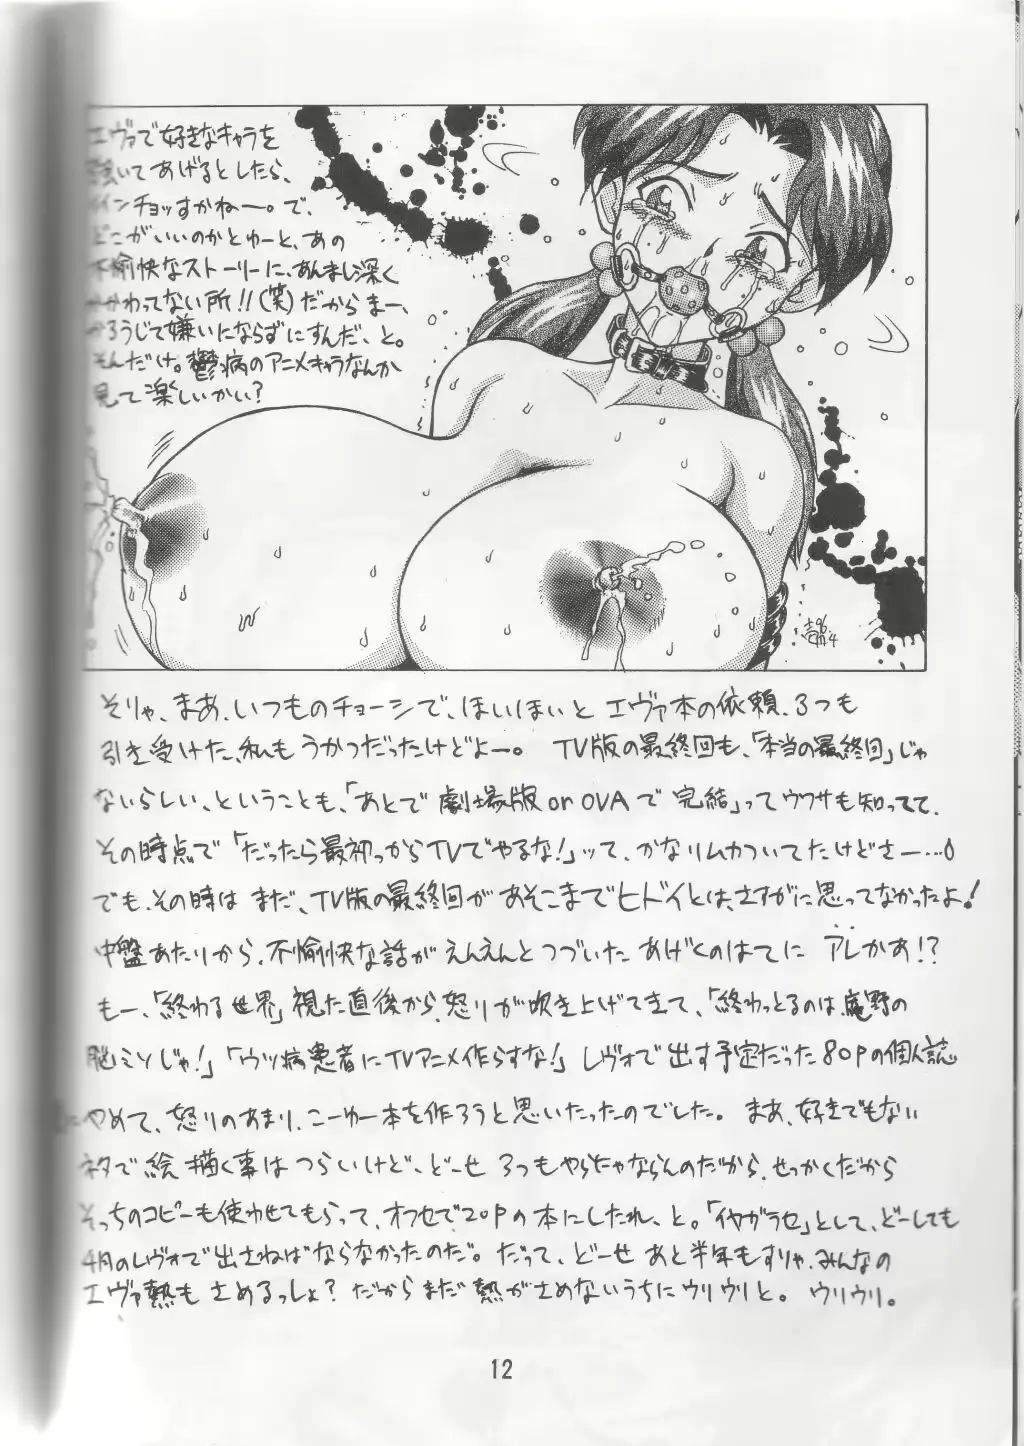 エヴァで好きなキャラを
いてあげるとしたら、
インチョッすかねー。で、
どこがいいのかとゆーと、あの
不愉快なストーリーに、あんまし深く
かかわってない所!!(笑)だからまー、
かろうじて嫌いにならずにすんだ、と。
そんだけ。鬱病のアニメキャラなんか
見て楽しいかい?
'96.4
そりゃ、まあ、いつものチョーシで、ほいほいと エヴァ本の依頼、3つも
引き受けた、私もうかつだったけどよー。 TV版の最終回も、「本当の最終回」じゃ
ないらしい、ということも、「あとで 劇場版 or OVAで 完結」ってウワサも知ってて、
その時点で「だったら最初っからTVでやるな!」ッて、かなりムカついてたけどさー…
でも、その時は まだ、TV版の最終回が あそこまでヒドイとは、さすがに思ってなかったよ!
中盤あたりから、不愉快な話がえんえんとつづいた あげくのはてに アレかあ!?
もー、「終わる世界」視た直後から、怒りが吹き上げてきて、「終わっとるのは、庵野の
脳ミソじゃ!」「ウツ病患者にTVアニメ作らすな!」 レヴォで出す予定だった80Pの個人誌
やめて、怒りのあまり、こーゆー本を作ろうと思いたったのでした。 まあ、好きでもない
ネタで絵 描く事は つらいけど、どーせ 3つもやらにゃならんのだから、せっかくだから
そっちのコピーも使わせてもらって、オフセで20Pの本にしたれ、と。「イヤガラセ」として、どーしても
4月のレヴォで出さねばならなかったのだ。だって、どーせ あと半年もすりゃ、みんなの
エヴァ熱も さめるっしょ? だから まだ 熱がさめないうちにウリウリと。 ウリウリ。
12